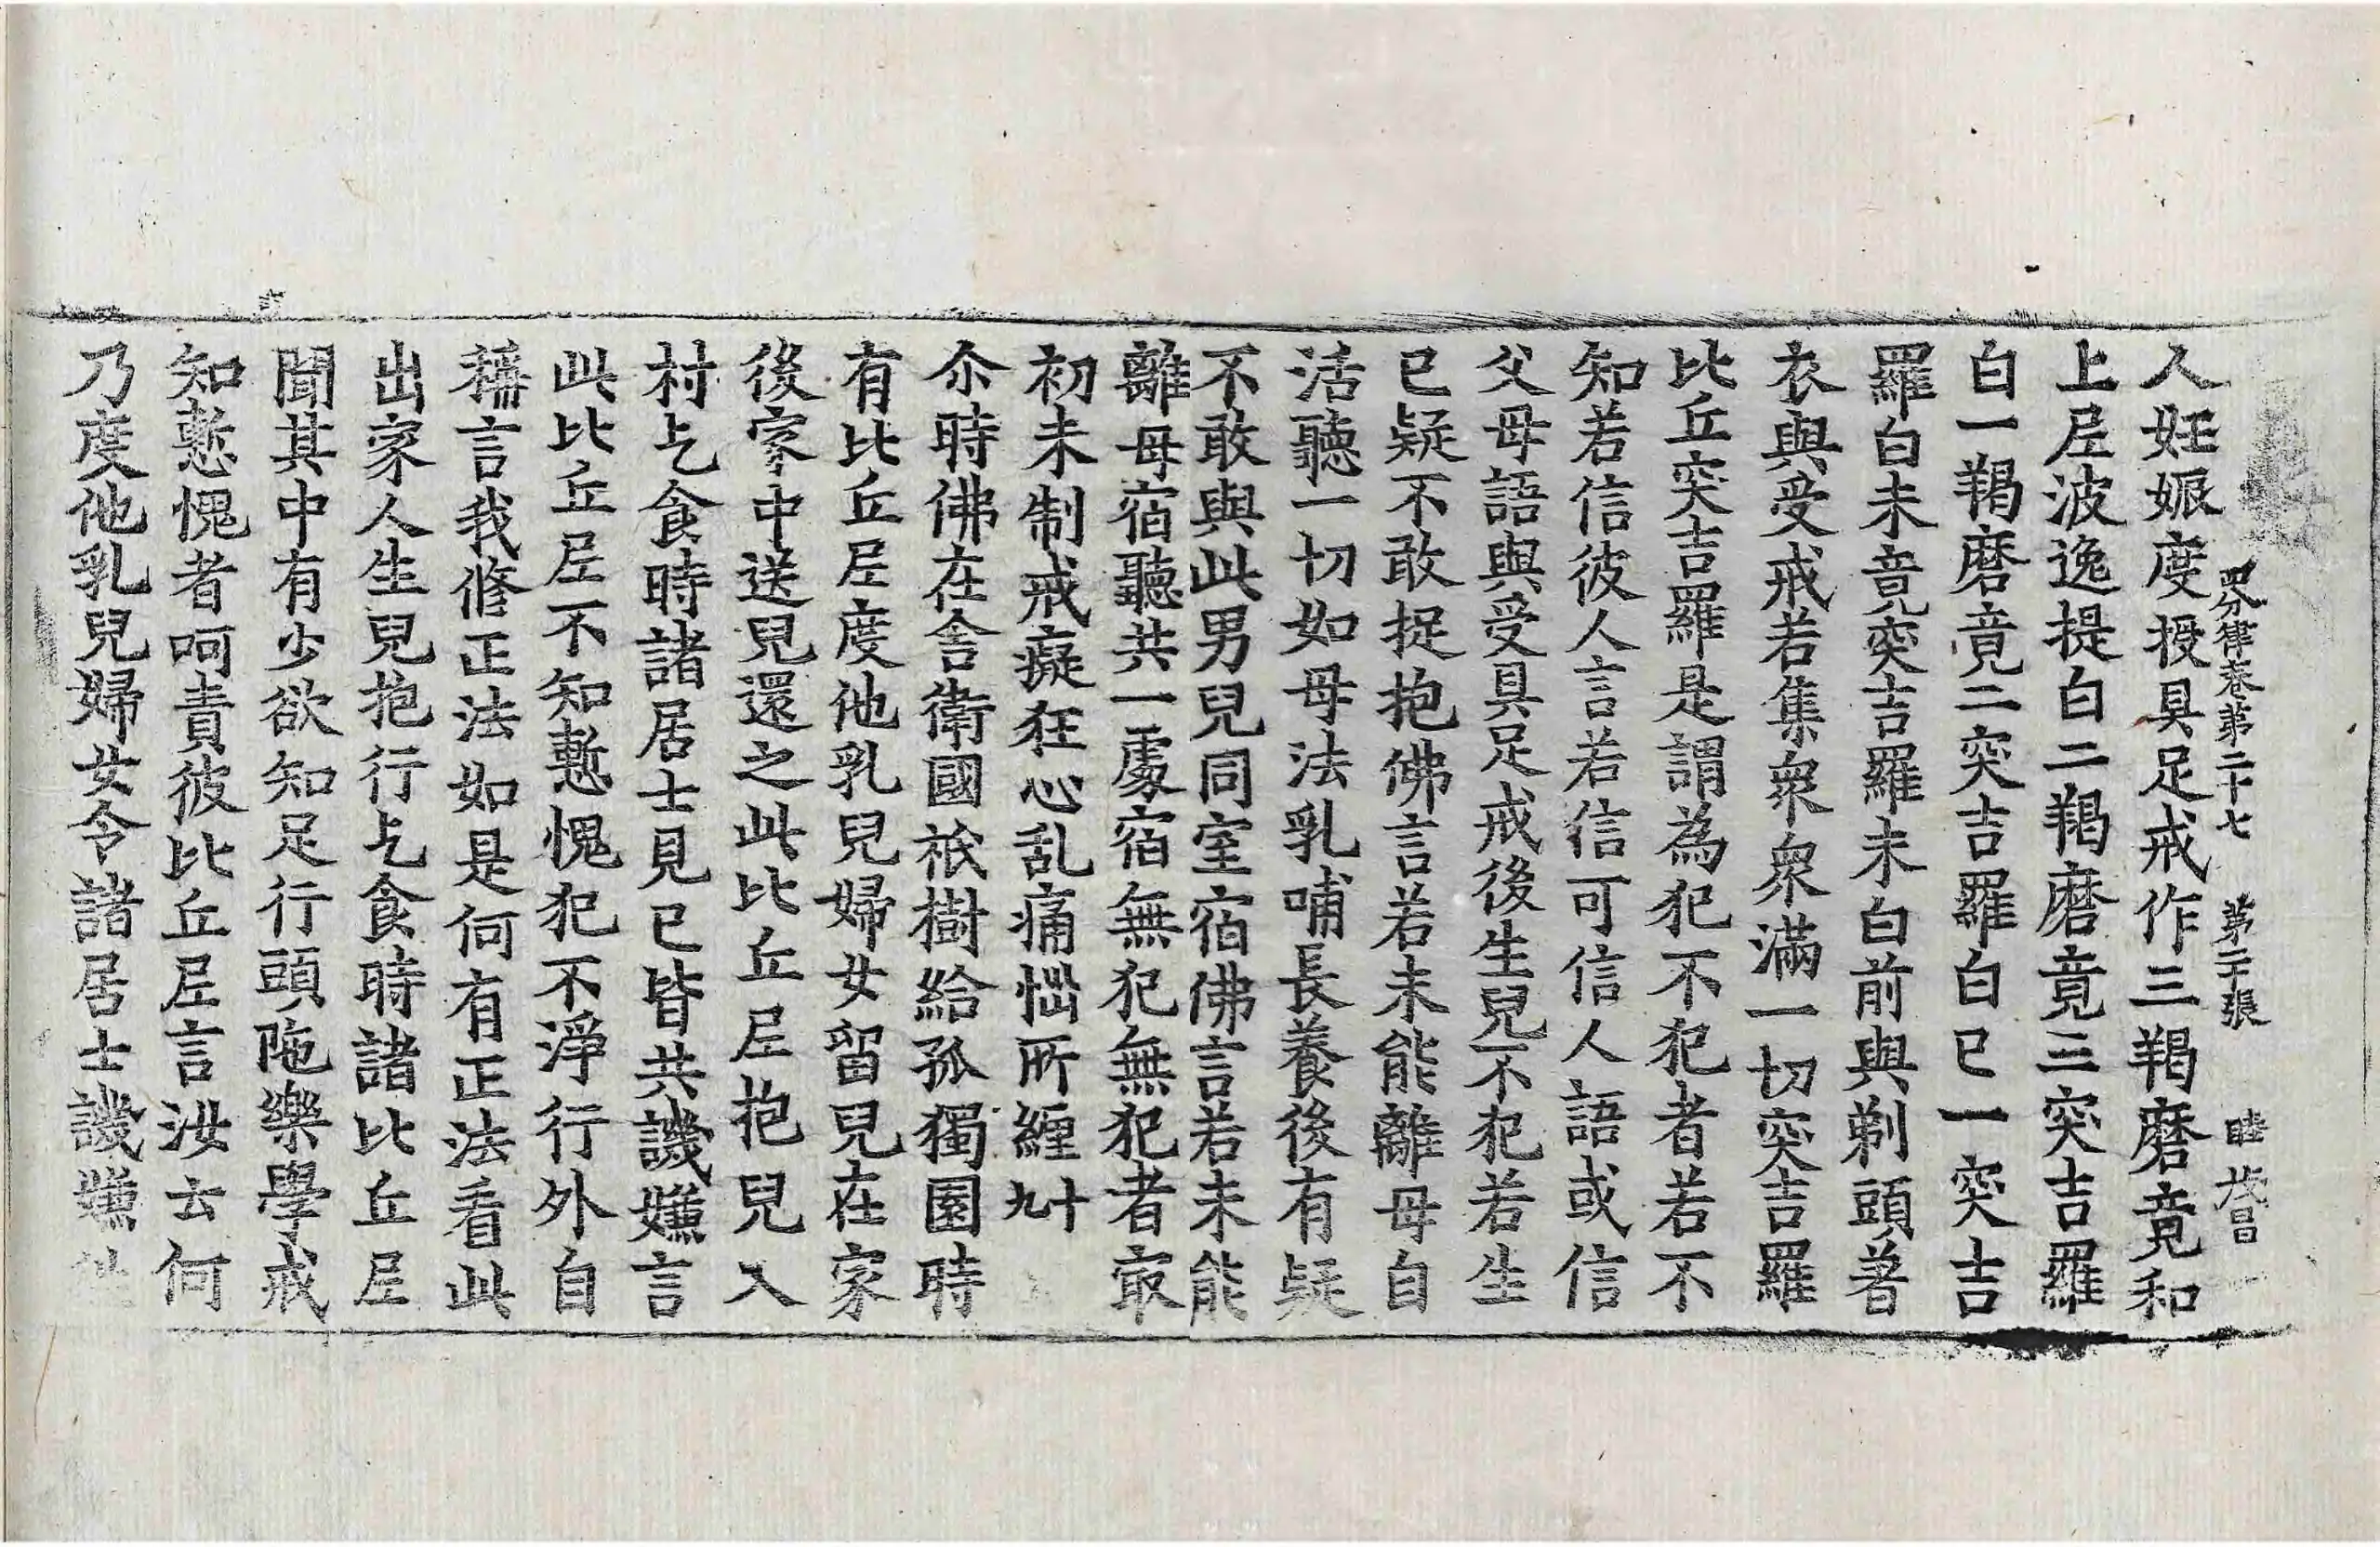 四分律卷第二十七 第二十張 睦 茂昌
人妊娠度授具足戒作三羯磨竟和
上尼波逸提白二羯磨竟三突吉羅
白一羯磨竟二突吉羅白已一突吉
羅白未竟突吉羅未白前與剃頭著
衣與受戒若集衆衆滿一切突吉羅
比丘突吉羅是謂為犯不犯者若不
知若信彼人言若信可信人語或信
父母語與受具足戒後生兒不犯若生
已疑不敢捉抱佛言若未能離母自
活聽一切如母法乳哺長養後有疑
不敢與此男兒同室宿佛言若未能
離母宿聽共一處宿無犯無犯者㝡
初未制戒癡狂心乱痛惱所纏九十
尒時佛在舍衛國祇樹給孤獨園時
有比丘尼度他乳兒婦女留兒在家
後家中送兒還之此比丘尼抱兒入
村乞食時諸居士見已皆共譏嫌言
此比丘尼不知慙愧犯不淨行外自
稱言我修正法如是何有正法看此
出家人生兒抱行乞食時諸比丘尼
聞其中有少欲知足行頭陁樂學戒
知慙愧者呵責彼比丘尼言汝云何
乃度他乳兒婦女令諸居士譏嫌